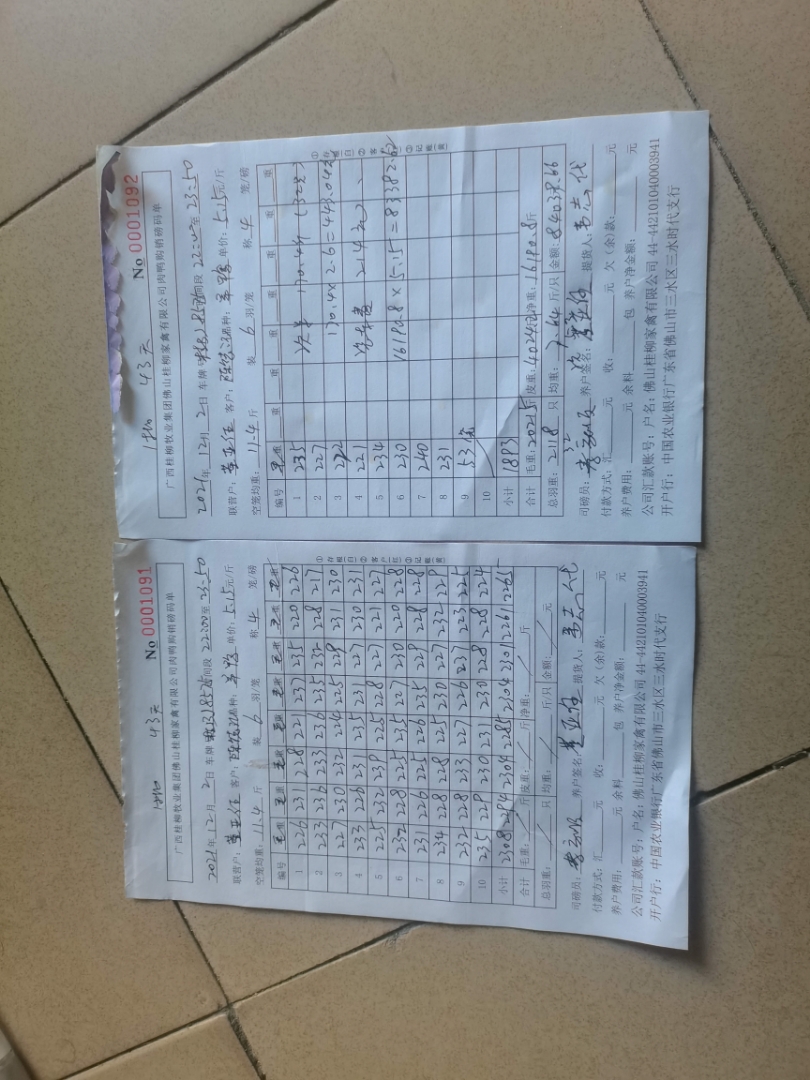 1940 43天
No 0001091
广西桂柳牧业集团佛山桂柳家禽有限公司肉鸭购销磅码单
2021年12月2日 车牌 时间段 22:00至23:50
联营户: 客户: 苗种: 单价:5.15元/斤
空笼均重: 11.4 斤 装 6 羽/笼 称 4 笼/磅
编号 毛重 毛重 毛重 毛重 毛重 毛重 毛重 毛重
1 226 231 228 221 237 235 220 226
2 223 236 233 236 235 232 228 217
3 227 230 232 224 225 229 231 230
4 233 226 231 235 231 227 230 231
5 225 232 239 225 228 227 221 227
6 232 228 225 235 227 230 220 228
7 231 226 225 226 235 229 228 228
8 234 228 228 225 230 227 232 229
9 232 228 233 227 226 237 223 225
10 235 229 230 231 230 228 228 224
小计 2308 2294 2304 2285 2304 2301 2261 2265
合计 毛重: 斤 皮重: 斤 净重: 斤
总羽重: 只 均重: 斤/只 金额: 元
①存根(白) ②客户(红) ③记账(黄)
司磅员: 养户签名: 提货人:
付款方式:汇 元 收: 元 欠(余)款: 元
养户费用: 元 余料 包 养户净金额: 元
公司汇款账号:户名:佛山桂柳家禽有限公司 44-442101040003941
开户行:中国农业银行广东省佛山市三水区三水时代支行
43天
No 0001092
广西桂柳牧业集团佛山桂柳家禽有限公司肉鸭购销磅码单
2021年12月2日 车牌 时间段 22:00至23:50
联营户: 客户: 苗种: 单价:5.15元/斤
空笼均重: 11.4 斤 装 6 羽/笼 称 4 笼/磅
编号 毛重 重 重 重 重 重
1 235 170.4斤 (32只)
2 227
3 222 170.4×2.6=443.04元
4 221 214元
5 234
6 230 16180.8×5.15=83382.62
7 240
8 231
9 53
10
小计 1893
合计 毛重:20215斤 皮重:4024.2斤 净重:16180.8斤
总羽重:2118 只 均重:7.64 斤/只 金额:84039.66
32
①存根(白) ②客户(红) ③记账(黄)
司磅员: 养户签名: 提货人:
付款方式:汇 元 收: 元 欠(余)款: 元
养户费用: 元 余料 包 养户净金额: 元
公司汇款账号:户名:佛山桂柳家禽有限公司 44-442101040003941
开户行:中国农业银行广东省佛山市三水区三水时代支行